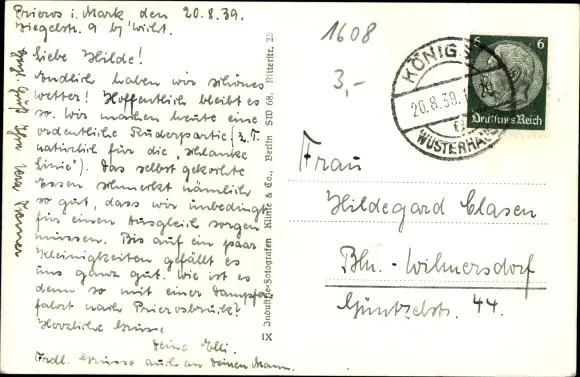 Prieros i. Mark den 20.8.39.
Ziegelstr. 9 b/ Wicht.
Liebe Hilde!
Endlich haben wir schönes
Wetter! Hoffentlich bleibt es
so. Wir machen heute eine
ordentliche Ruderpartie (z. T.
natürlich für die „schlanke
Linie"). Das selbst gekochte
Essen schmeckt nämlich
so gut, dass wir unbedingt
für einen Ausgleich sorgen
müssen. Bis auf ein paar
Kleinigkeiten gefällt es
uns ganz gut. Wie ist es
denn so mit einer Dampfer
fahrt nach Prierosbrück?
Herzliche Grüsse
Deine Elli.
Frdl. Grüsse auch an Deinen Mann.
Herzl. Gruß Ihre Vera
IX Industrie-Fotografen Klinke & Co., Berlin SW 68, Ritterstr. 23
1608
3,-
KÖNIGS
20.8.39.
WUSTERHAU
6 6
Deutsches Reich
Frau
Hildegard Clasen
Bln.-Wilmersdorf
Güntzelstr. 44.